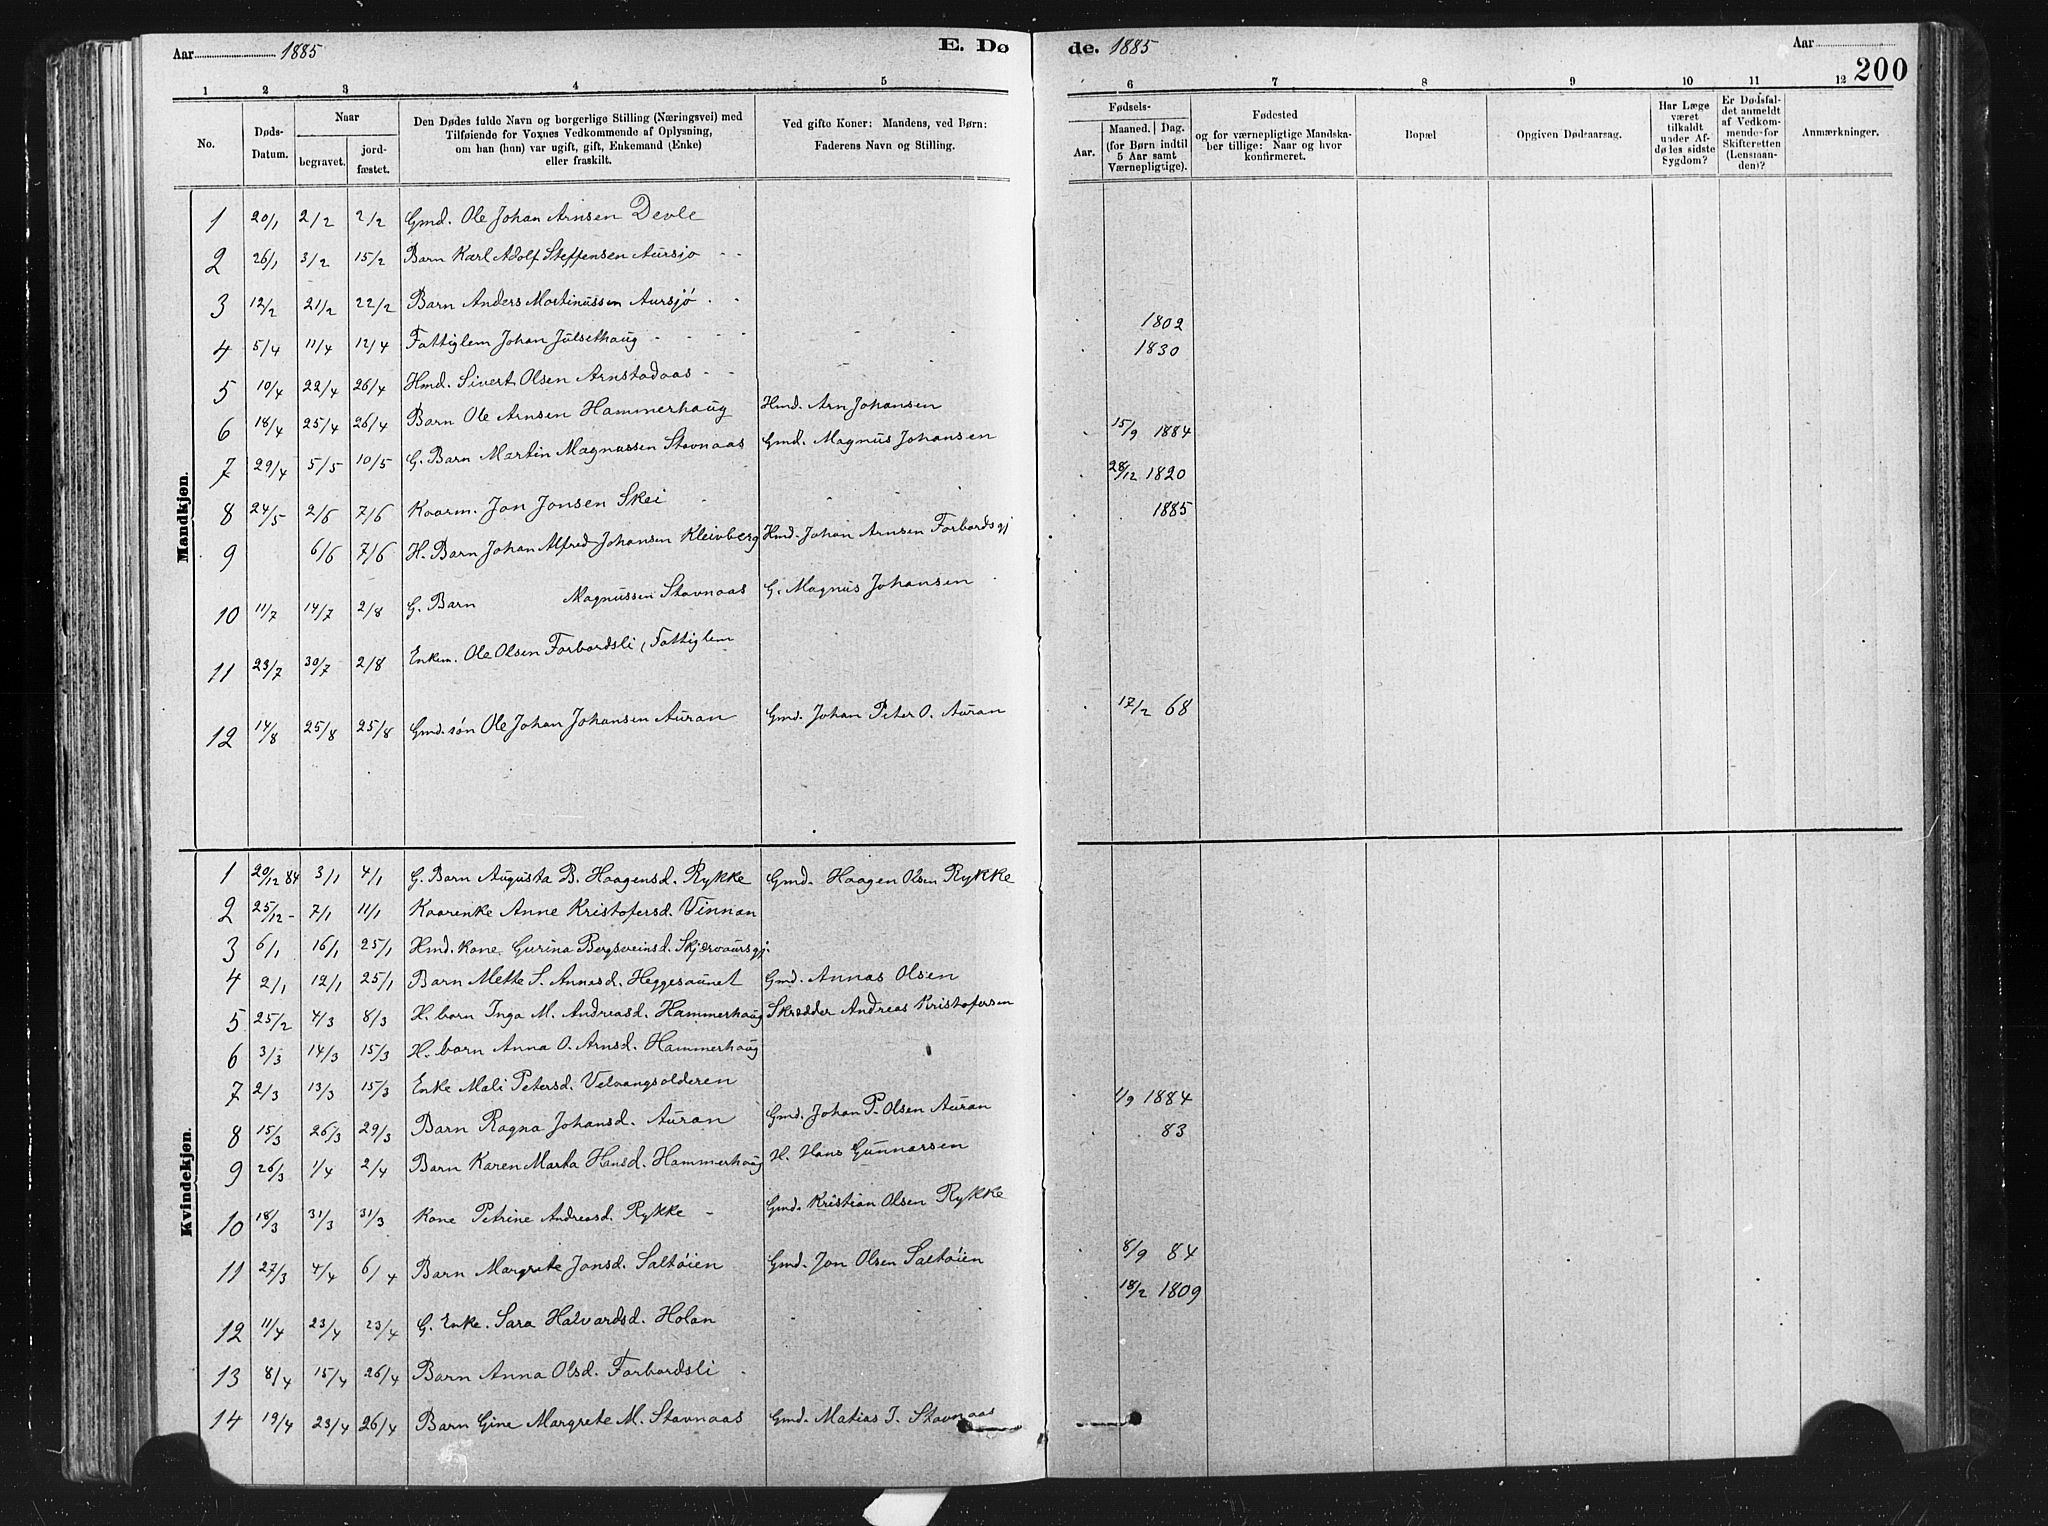 Aar 1885 E. Døde. 1885 Aar 200
1 2 3 4 5 6 7 8 9 10 11 12
No. Døds-Datum. Naar begravet. jordfæstet. Den Dødes fulde Navn og borgerlige Stilling (Næringsvei) med Tilføiende for Voxnes Vedkommende af Oplysning, om han (hun) var ugift, gift, Enkemand (Enke) eller fraskilt. Ved gifte Koner: Mandens, ved Børn: Faderens Navn og Stilling. Fødsels- Aar. Maaned. Dag. (for Børn indtil 5 Aar samt Værnepligtige). Fødested og for værnepligtige Mandskaber tillige: Naar og hvor konfirmeret. Bopæl Opgiven Dødsaarsag. Har Læge været tilkaldt under Afdødes sidste Sygdom? Er Dødsfaldet anmeldt af Vedkommende for Skifteretten (Lensmanden)? Anmærkninger.
Mandkjøn.
1 20/1 2/2 2/2 Gmd. Ole Johan Arnsen Devle
2 26/1 3/2 15/2 Barn Karl Adolf Steffensen Aursjo
3 12/2 21/2 22/2 Barn Anders Mortinussen Aursjó
1802
4 5/4 11/4 12/4 Fattiglem Johan Julsethaug
1830
5 10/4 22/4 26/4 Hmd. Sivert Olsen Arnstadaas
6 18/4 25/4 26/4 Barn Ole Arnsen Hammerhaug Hmd. Arn Johansen
15/9 1884
7 29/4 5/5 10/5 G. Barn Martin Magnussen Stavnaas Gmd. Magnus Johansen
28/12 1820
8 24/5 2/6 7/6 Kaarm. Jon Jonsen Skei
1885
9 6/6 7/6 H. Barn Johan Alfred Johansen Kleivberg Hmd. Johan Arnsen Forbordsgj
10 11/7 14/7 2/8 G. Barn Magnussen Stavnaas G. Magnus Johansen
11 23/7 30/7 2/8 Enkem. Ole Olsen Forbordsli, Fattiglem
17/2 68
12 14/8 25/8 25/8 Gmd. søn Ole Johan Johansen Auran Gmd. Johan Peter O. Auran
Kvindekjøn.
1 20/12 84 3/1 4/1 G. Barn Augusta B. Haagensd. Rykke Gmd. Haagen Olsen Rykke
2 25/12 - 7/1 11/1 Kaarenke Anne Kristofersd. Vinnan
3 6/1 16/1 25/1 Hmd. kone Gurina Bergsveinsd. Skjærvaursgj.
4 2/1 12/1 25/1 Barn Mette S. Annasd. Heggesaunet Gmd. Annas Olsen
5 25/2 4/3 8/3 H. barn Inga M. Andreasd. Hammerhaug Skrædder Andreas Kristofersen
6 3/3 14/3 15/3 H. barn Anna O. Arnsd. Hammerhaug
7 2/3 13/3 15/3 Enke Mali Petersd. Velvangsolderen
1/9 1884
8 15/3 26/3 29/3 Barn Ragna Johansd. Auran Gmd. Johan P. Olsen Auran
83
9 26/3 1/4 2/4 Barn Karen Marta Hansd. Hammerhaug H. Hans Gunnarsen
10 18/3 31/3 31/3 Kone Petrine Andreasd. Rykke Gmd. Kristian Olsen Rykke
8/9 84
11 27/3 4/4 6/4 Barn Margrete Jonsd. Saltöien Gmd. Jon Olsen Saltöien
18/2 1809
12 11/4 23/4 23/4 G. Enke. Sara Halvardsd. Holan
13 8/4 15/4 26/4 Barn Anna Olsd. Forbordsli
14 19/4 23/4 26/4 Barn Gine Margrete M. Stavnaas Gmd. Matias J. Stavnaas